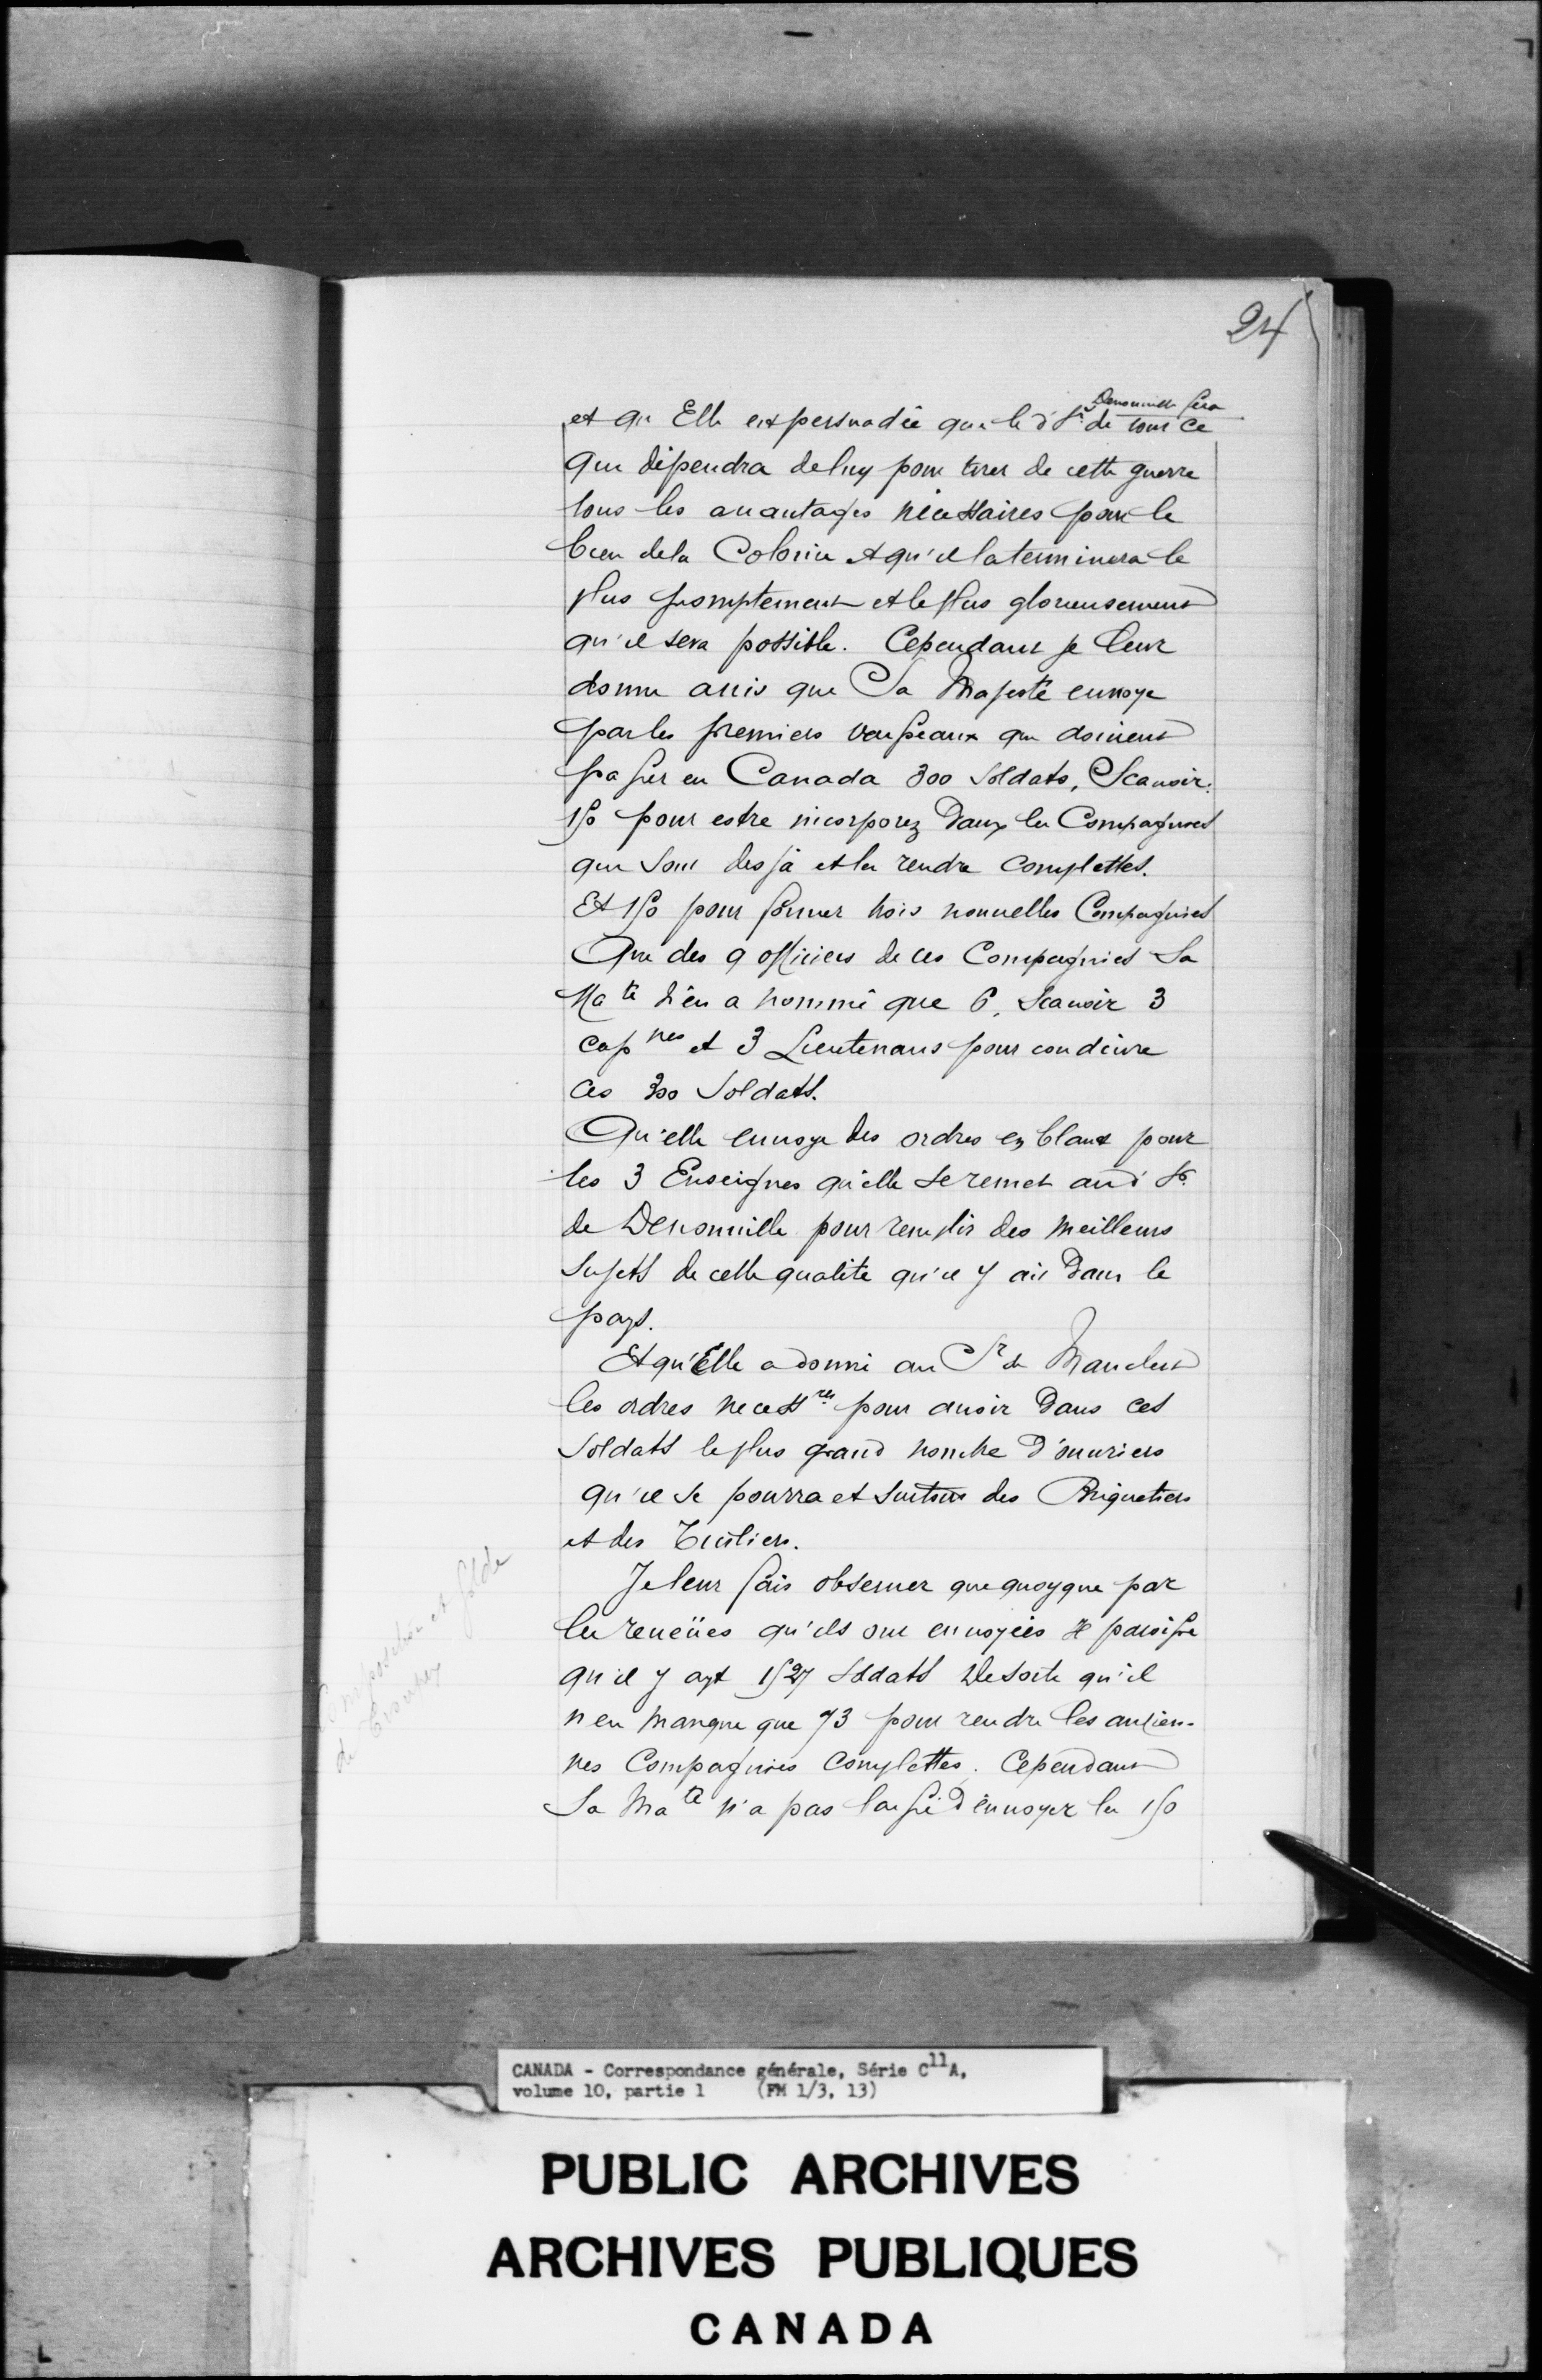 24
et qu'Elle est persuadée que le d. Sr. de Denonville fera tout ce
qui dépendra de luy pour tirer de cette guerre
tous les auantages nécessaires pour le
bien de la Colonie et qu'il la terminera le
plus promptement et le plus glorieusement
qu'il sera possible. Cependant je leur
donne auis que Sa Majesté enuoye
par les premiers vaisseaux qui doiuent
passer en Canada 300 soldats, Scauoir:
150 pour estre incorporez dans les Compagnies
qui sont desjà et les rendre complettes.
Et 150 pour former trois nouuelles Compagnies
Que des 9 officiers de ces Compagnies Sa
Ma té n'en a nommé que 6, scauoir 3
cap nes et 3 Lieutenans pour conduire
ces 300 Soldats.
Qu'elle enuoye des ordres en blanc pour
les 3 Enseignes qu'elle se remet au d. Sr.
de Denonuille pour remplir des meilleurs
sujets de cette qualité qu'il y ait dans le
pays.
Et qu'Elle a donné au Sr de Mauclerc
les ordres necess res pour auoir dans ces
Soldats le plus grand nombre d'ouuriers
qu'il se pourra et surtout des Briquetiers
et des Tuiliers.
Je leur fais obseruer que quoyque par
les reueües qu'ils ont enuoyées il paroisse
qu'il y ayt 1527 soldats de sorte qu'il
n'en manque que 73 pour rendre les ancien-
nes Compagnies complettes. Cependant
Sa Ma té n'a pas laissé d'enuoyer les 150
Composition et solde
de troupes
CANADA - Correspondance générale, Série C11A,
volume 10, partie 1 (FM 1/3, 13)
PUBLIC ARCHIVES
ARCHIVES PUBLIQUES
CANADA